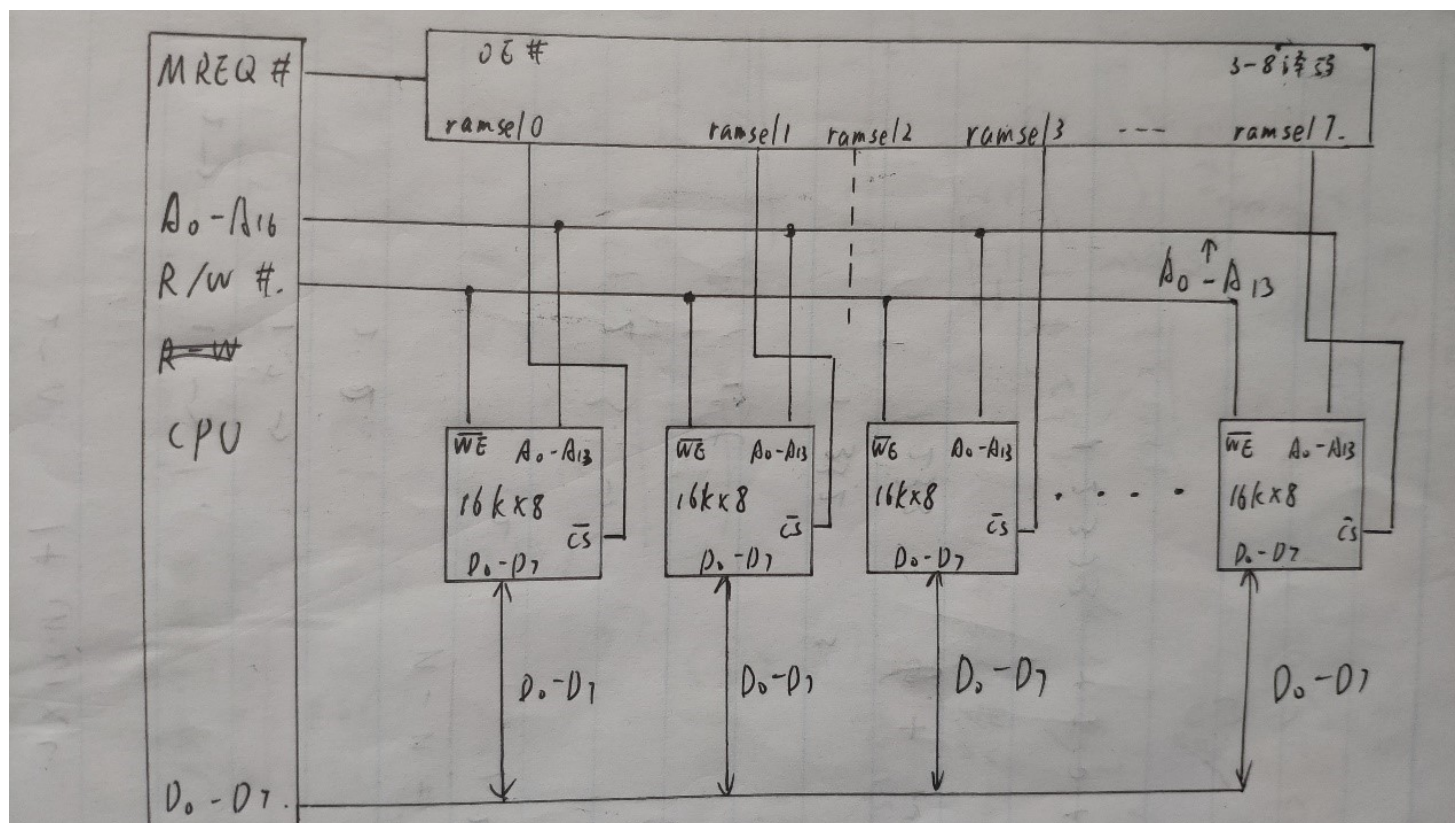 MREQ #
OE #
3-8译码
ramsel0
ramsel1
ramsel2
ramsel3
ramsel7.
A0-A16
R/W #.
A0-A13
CPU
WE A0-A13
16k×8
CS
D0-D7
WE A0-A13
16k×8
CS
D0-D7
WE A0-A13
16k×8
CS
D0-D7
WE A0-A13
16k×8
CS
D0-D7
D0-D7
D0-D7
D0-D7
D0-D7
D0-D7.